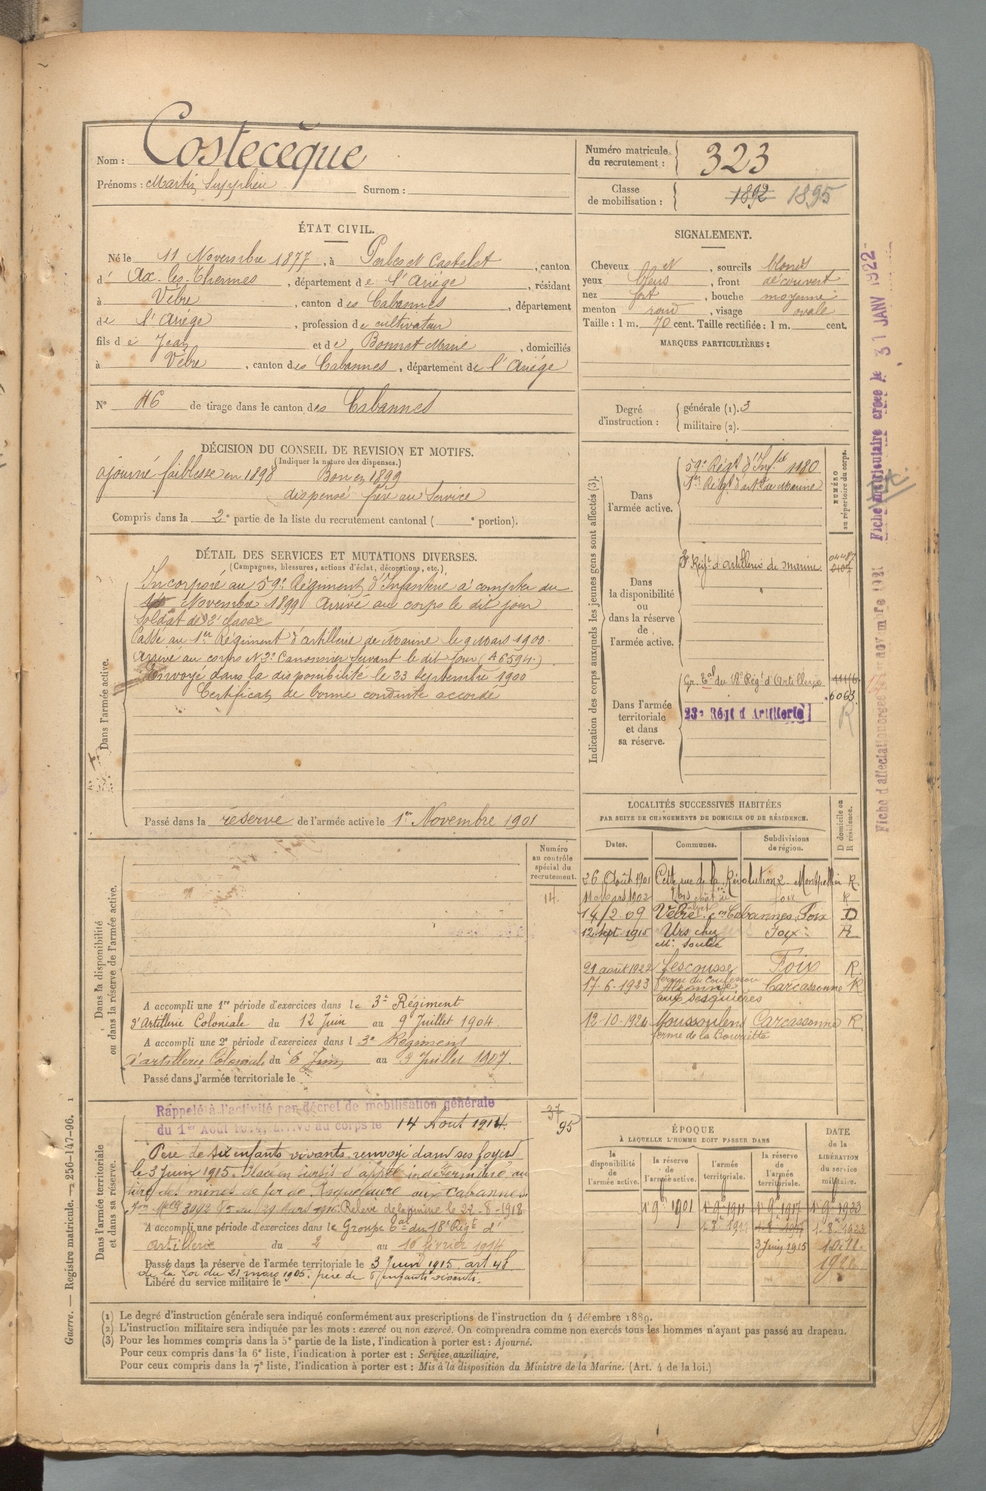 Nom : Costecèque
Prénoms : Martin Surnom :
Numéro matricule du recrutement : 323
Classe de mobilisation : 1892 1895
ÉTAT CIVIL.
Né le 11 Novembre 1877, à Perles et Castelet, canton
d' Ax-les-Thermes, département de l'Ariège, résidant
à Vèbre, canton des Cabannes, département
de l'Ariège, profession de cultivateur
fils de Jean et de Bonnet Marie, domiciliés
à Vèbre, canton des Cabannes, département de l'Ariège
N° 46 de tirage dans le canton des Cabannes
SIGNALEMENT.
Cheveux et, sourcils blonds
yeux bleus, front découvert
nez fort, bouche moyenne
menton rond, visage ovale
Taille : 1 m. 70 cent. Taille rectifiée : 1 m. cent.
MARQUES PARTICULIÈRES :
Degré d'instruction : générale (1). 3
militaire (2).
DÉCISION DU CONSEIL DE REVISION ET MOTIFS.
(Indiquer la nature des dispenses.)
ajourné faiblesse en 1898 Bon en 1899
dispensé frère au Service
Compris dans la 2e partie de la liste du recrutement cantonal ( e portion).
DÉTAIL DES SERVICES ET MUTATIONS DIVERSES.
(Campagnes, blessures, actions d'éclat, décorations, etc.)
Dans l'armée active.
Incorporé au 59e Régiment d'Infanterie à compter du
Novembre 1899 Arrivé au corps le dit jour
Soldat de 2e classe
Passé au 1er Régiment d'artillerie de Marine le 9 Mars 1900.
Arrivé au corps N 3e Canonnier servant le dit jour (A 6594)
Envoyé dans la disponibilité le 23 septembre 1900
Certificat de bonne conduite accordé
Passé dans la réserve de l'armée active le 1er Novembre 1901
Indication des corps auxquels les jeunes gens sont affectés (3).
NUMÉRO au répertoire du corps.
Dans l'armée active.
59e Régt d'Inf.ie 1180
1er Régt d'art. de Marine
Dans la disponibilité ou dans la réserve de l'armée active.
3e Régt d'Artillerie de Marine
Dans l'armée territoriale et dans sa réserve.
Gr. Tal du 18e Régt d'Artillerie
6063
23e Régt d'Artillerie
R
Fiche matriculaire créée le 31 JANV 1922
LOCALITÉS SUCCESSIVES HABITÉES
PAR SUITE DE CHANGEMENTS DE DOMICILE OU DE RÉSIDENCE.
Dates. Communes. Subdivisions de région. D domicile ou R résidence.
26 Août 1901 Cette rue de la Révolution 2 Montpellier R
11 1902 Urs Foix R
14/2 09 Vèbre con Cabannes Foix D
12 Sept. 1915 Urs chez Mr Foix R
21 août 1922 Lescousse Foix R
17-6-1923 Carcassonne R
aux
12-10-1924 Moussoulens Carcassonne R
ferme de la
Numéro au contrôle spécial du recrutement.
14
Dans la disponibilité ou dans la réserve de l'armée active.
A accompli une 1re période d'exercices dans le 3e Régiment
d'Artillerie Coloniale du 12 Juin au 9 Juillet 1904.
A accompli une 2e période d'exercices dans le 3e Régiment
d'artillerie Coloniale du 6 Juin au 9 Juillet 1907.
Passé dans l'armée territoriale le
Dans l'armée territoriale et dans sa réserve.
Rappelé à l'activité par décret de mobilisation générale
du 1er Août 1914. Arrivé au corps le 14 Aout 1914.
37 95
Père de six enfants vivants, renvoyé dans ses foyers
le 3 Juin 1915. Mis en sursis d'appel indéterminé, au
titre des mines de fer de aux Cabannes.
Relevé de la mine le 22-8-1918
A accompli une période d'exercices dans le Groupe Tal du 18e Régt d'
artillerie du 2 au 10 février 1914
Passé dans la réserve de l'armée territoriale le 3 Juin 1915 art 48
de la loi du 21 mars 1905. père de 6 enfants vivants.
Libéré du service militaire le
ÉPOQUE
À LAQUELLE L'HOMME DOIT PASSER DANS
DATE de la LIBÉRATION du service militaire.
la disponibilité de l'armée active. la réserve de l'armée active. l'armée territoriale. la réserve de l'armée territoriale.
1er 9bre 1901 1er 9bre 1911 1er 9bre 1917
3 Juin 1915
(1) Le degré d'instruction générale sera indiqué conformément aux prescriptions de l'instruction du 4 décembre 1889.
(2) L'instruction militaire sera indiquée par les mots : exercé ou non exercé. On comprendra comme non exercés tous les hommes n'ayant pas passé au drapeau.
(3) Pour les hommes compris dans la 5e partie de la liste, l'indication à porter est : Ajourné.
Pour ceux compris dans la 6e liste, l'indication à porter est : Service auxiliaire.
Pour ceux compris dans la 7e liste, l'indication à porter est : Mis à la disposition du Ministre de la Marine. (Art. 4 de la loi.)
Guerre. — Registre matricule. — 256-147-96. 1